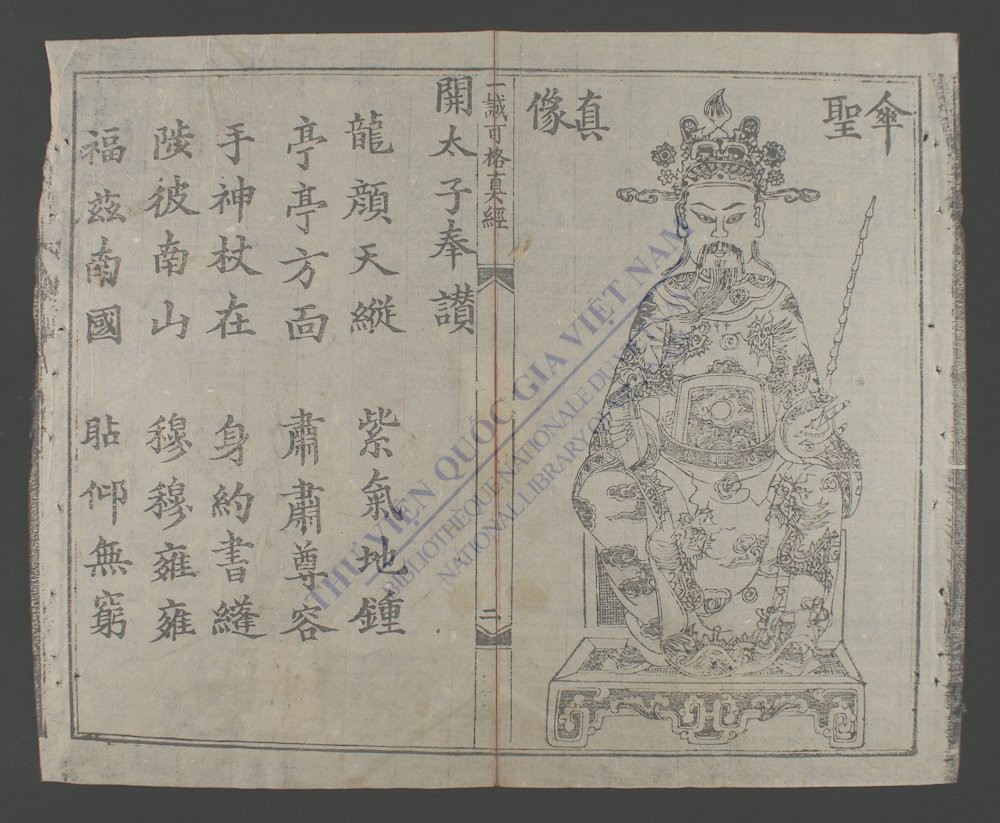 傘聖
真像
一誠可格真經
二
開太子奉讃
龍顔天縱 紫氣地鍾
亭亭方面 肅肅尊容
手神杖在 身約書縫
陟彼南山 穆穆雍雍
福兹南國 瞻仰無窮
THƯ VIỆN QUỐC GIA VIỆT NAM
BIBLIOTHÈQUE NATIONALE DU VIETNAM
NATIONAL LIBRARY OF VIETNAM